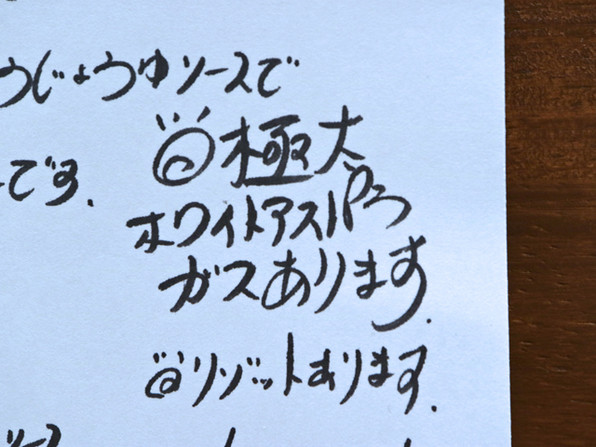 うじょうゆソースで
◎極太
です.
ホワイトアスパラ
ガスあります.
◎リゾットあります.